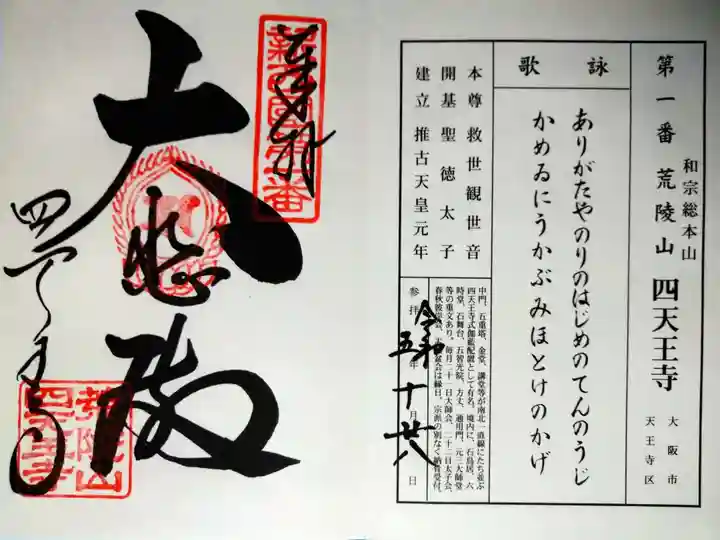 第一番 荒陵山 和宗総本山 四天王寺 大阪市天王寺区
詠歌
ありがたやのりのはじめのてんのうじ
かめゐにうかぶみほとけのかげ
本尊 救世観世音
開基 聖徳太子
建立 推古天皇元年
中門、五重塔、金堂、講堂等が南北一直線にたち並ぶ
四天王寺式伽藍配置として有名。境内に、石鳥居、六
時堂、石舞台、五智光院、方丈、通用門、元三大師堂
等の重文あり。毎月二十一日大師会、二十二日太子会、
春秋彼岸会、
会は縁日。宗派の別なく納骨受付。
参拝 令和五年十月廿八日
奉拝
大悲殿
四天王寺
新西国第一番
荒陵山
四天王寺